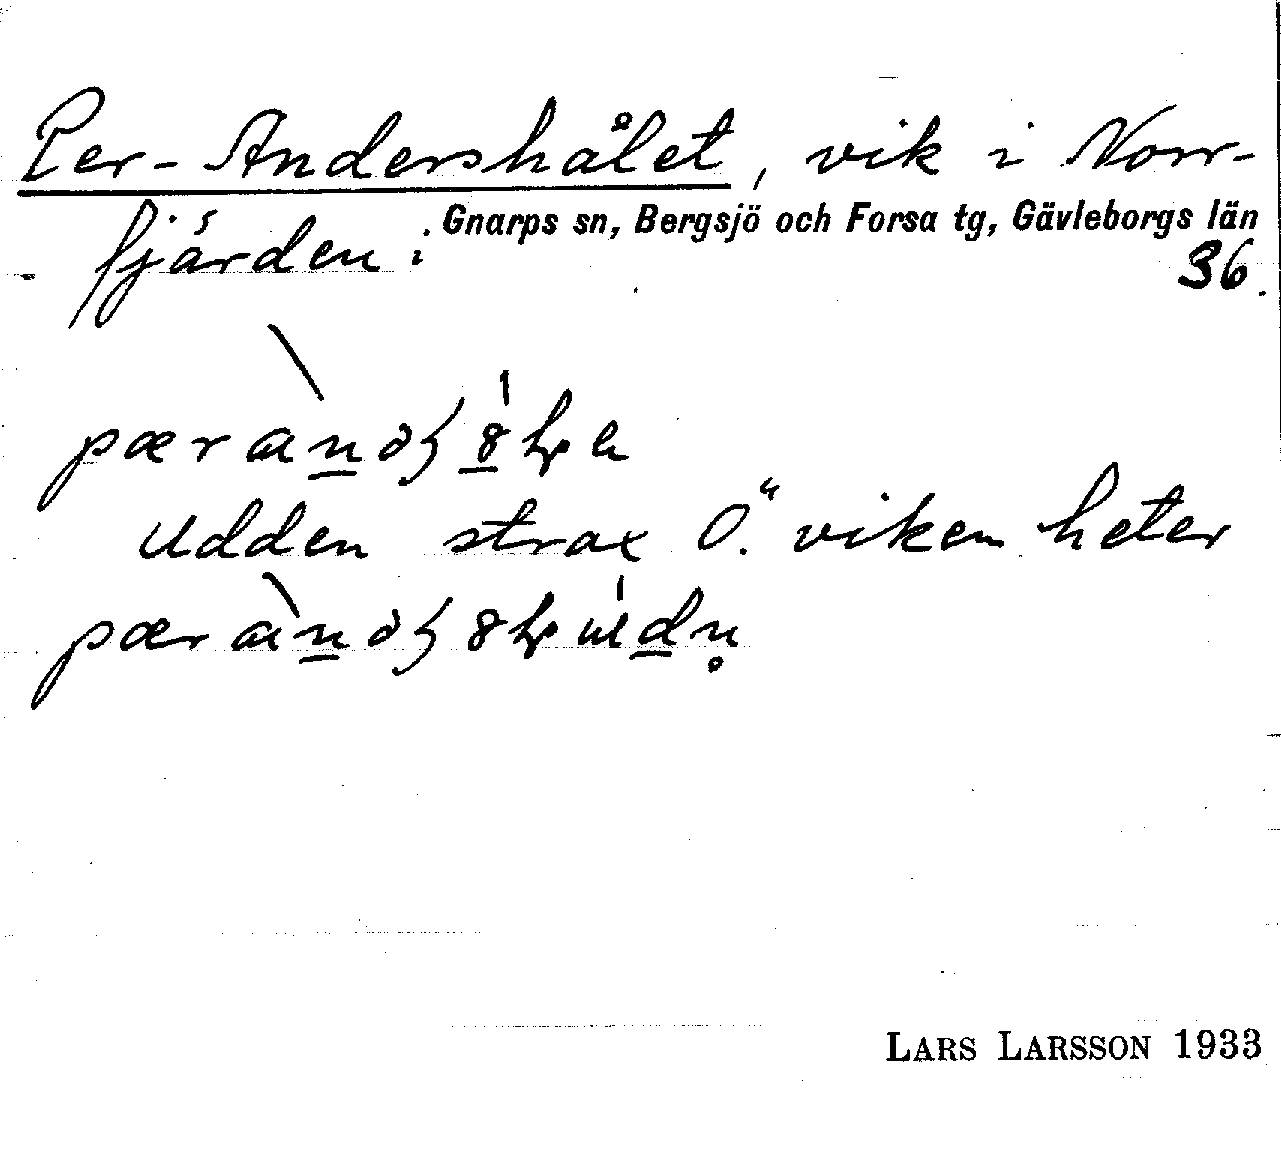 Per-Andershålet, vik i Norr-
fjärden:
Gnarps sn, Bergsjö och Forsa tg, Gävleborgs län
36.
Udden strax Ö. viken heter
LARS LARSSON 1933